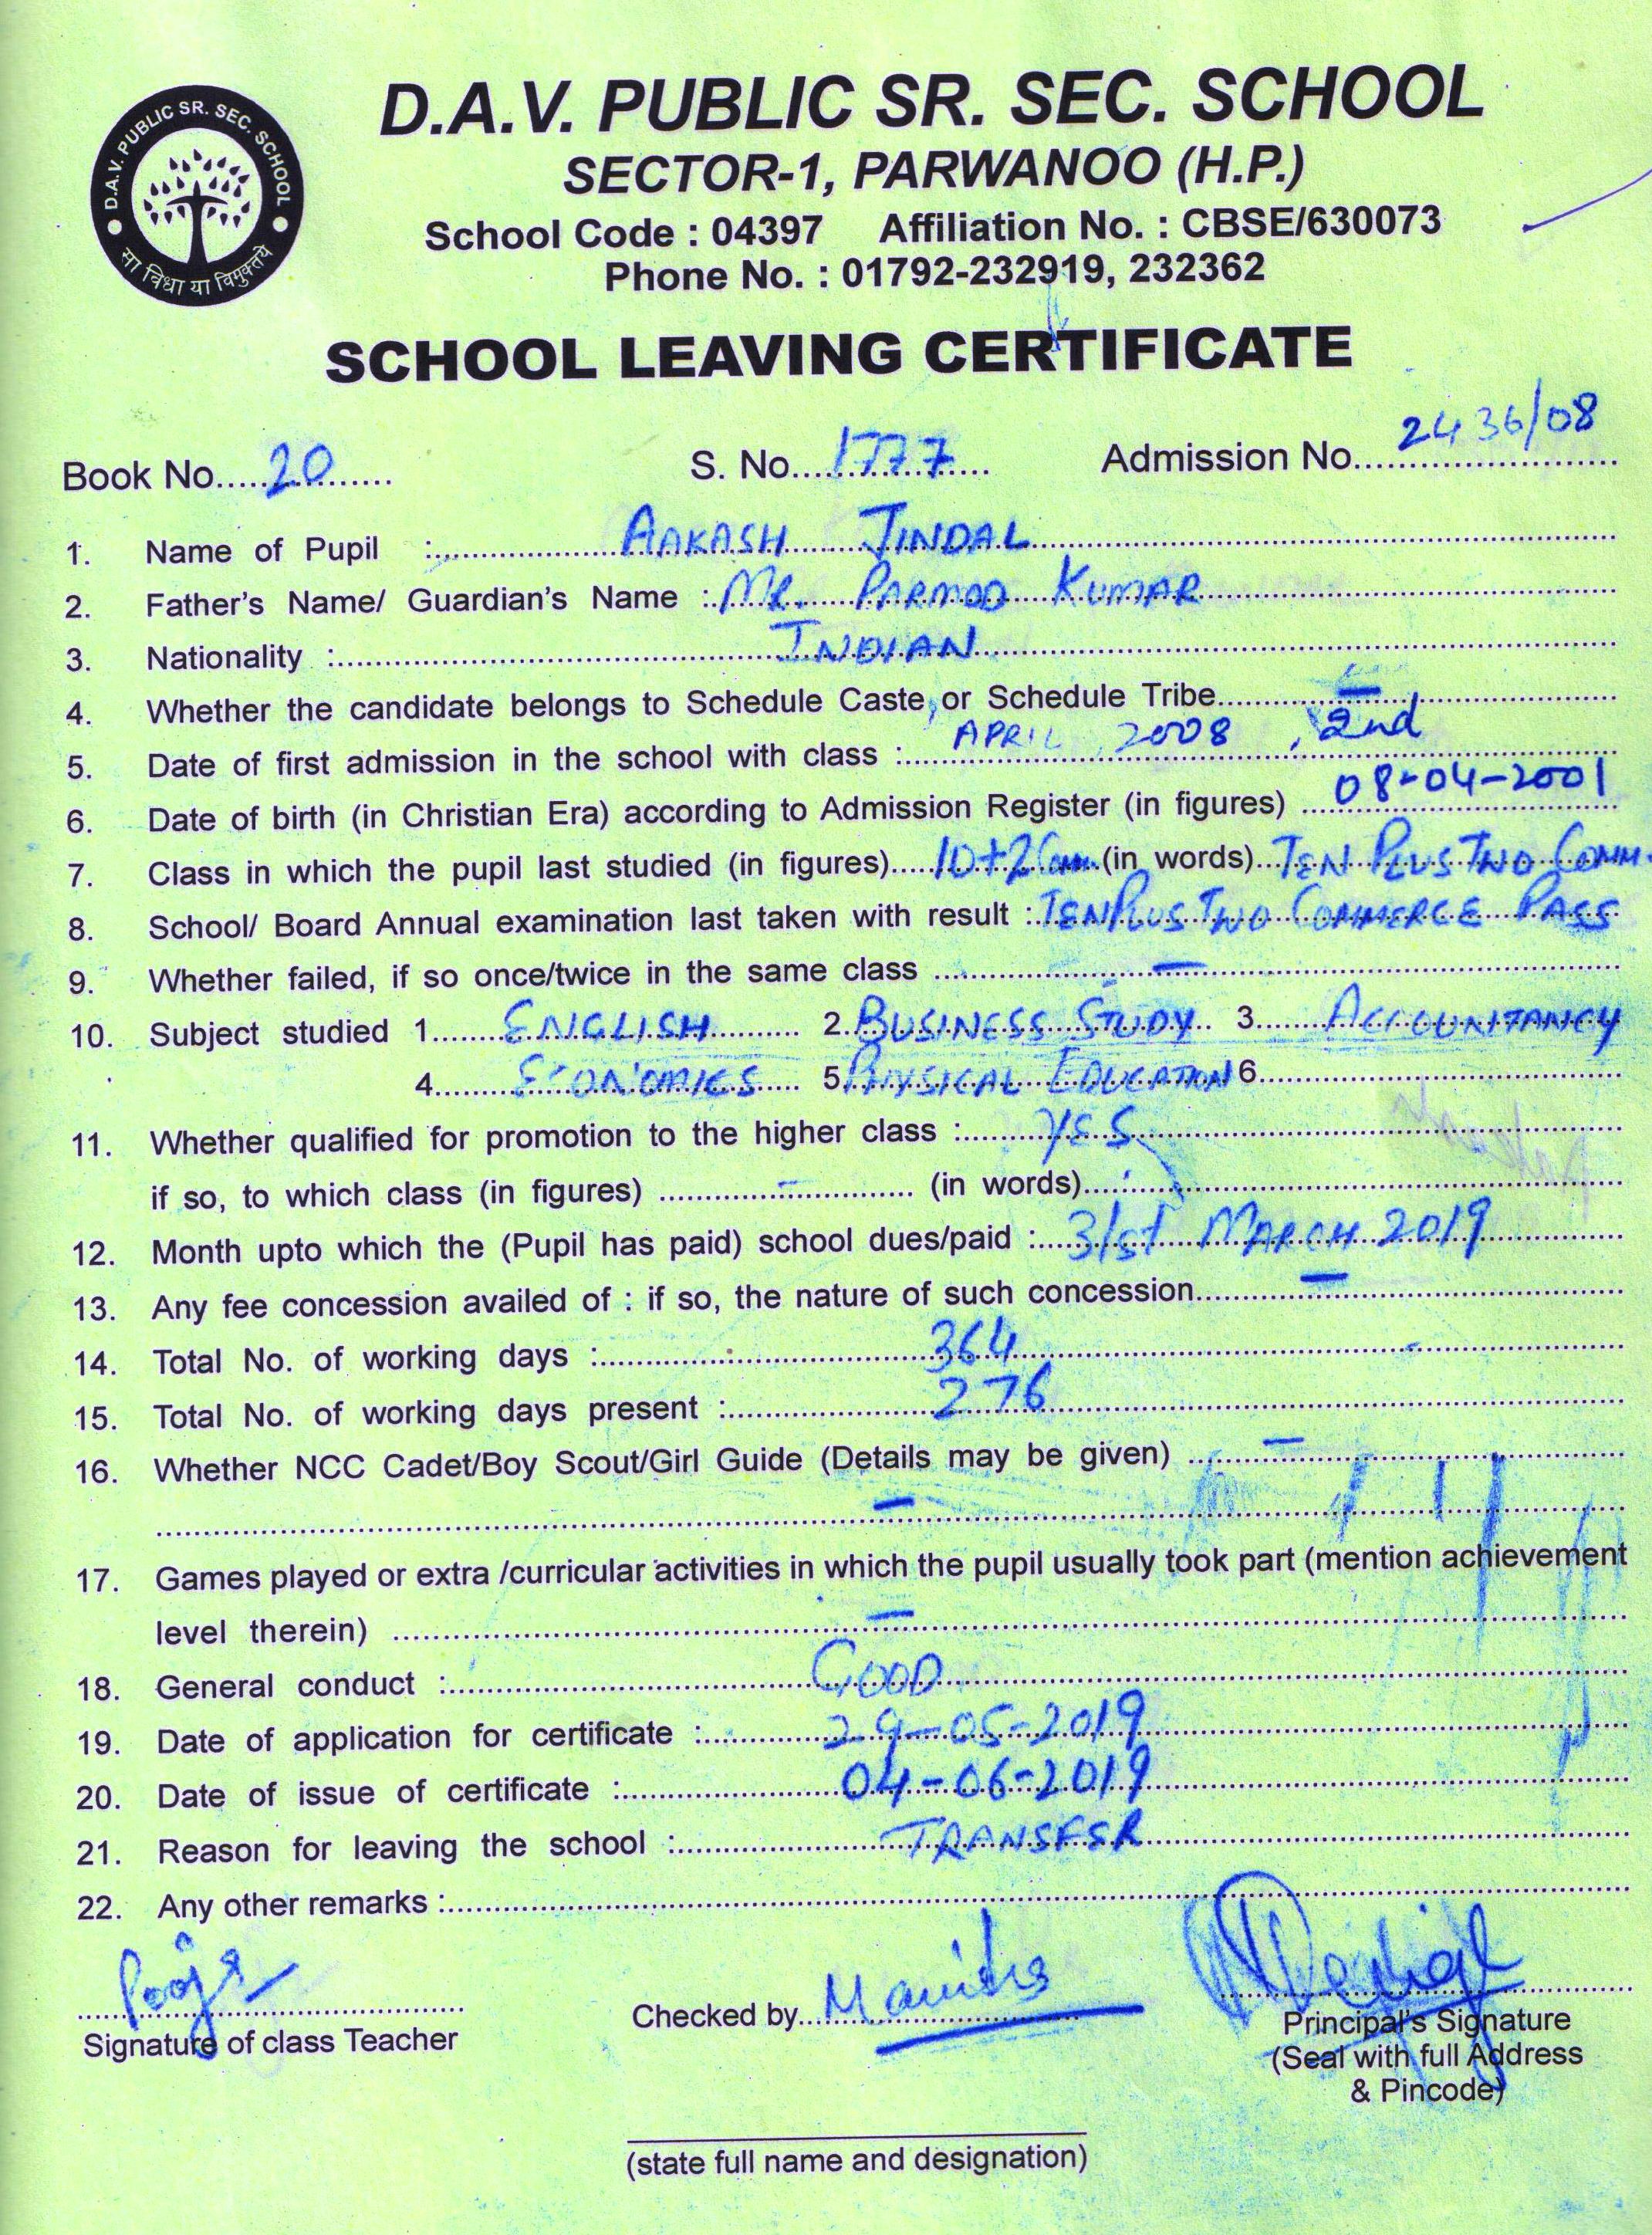 D.A.V. PUBLIC SR. SEC. SCHOOL
सा विद्या या विमुक्तये
D.A.V. PUBLIC SR. SEC. SCHOOL
SECTOR-1, PARWANOO (H.P.)
School Code : 04397 Affiliation No. : CBSE/630073
Phone No. : 01792-232919, 232362
SCHOOL LEAVING CERTIFICATE
Book No. 20 S. No. 1777 Admission No. 2436/08
1. Name of Pupil : AAKASH JINDAL
2. Father's Name/ Guardian's Name : MR. PARMOD KUMAR
3. Nationality : INDIAN
4. Whether the candidate belongs to Schedule Caste, or Schedule Tribe —
5. Date of first admission in the school with class : APRIL 2008, 2nd
6. Date of birth (in Christian Era) according to Admission Register (in figures) 08-04-2001
7. Class in which the pupil last studied (in figures) 10+2 Com. (in words) TEN PLUS TWO COMM.
8. School/ Board Annual examination last taken with result : TEN PLUS TWO COMMERCE PASS
9. Whether failed, if so once/twice in the same class —
10. Subject studied 1. ENGLISH 2. BUSINESS STUDY 3. ACCOUNTANCY
4. ECONOMICS 5. PHYSICAL EDUCATION 6.
11. Whether qualified for promotion to the higher class : YES
if so, to which class (in figures) - (in words)
12. Month upto which the (Pupil has paid) school dues/paid : 31st MARCH 2019
13. Any fee concession availed of : if so, the nature of such concession —
14. Total No. of working days : 364
15. Total No. of working days present : 276
16. Whether NCC Cadet/Boy Scout/Girl Guide (Details may be given) —
—
17. Games played or extra /curricular activities in which the pupil usually took part (mention achievement
level therein) —
18. General conduct : GOOD
19. Date of application for certificate : 29-05-2019
20. Date of issue of certificate : 04-06-2019
21. Reason for leaving the school : TRANSFER
22. Any other remarks :
Pooja
Signature of class Teacher
Checked by Manisha
Principal's Signature
(Seal with full Address
& Pincode)
(state full name and designation)